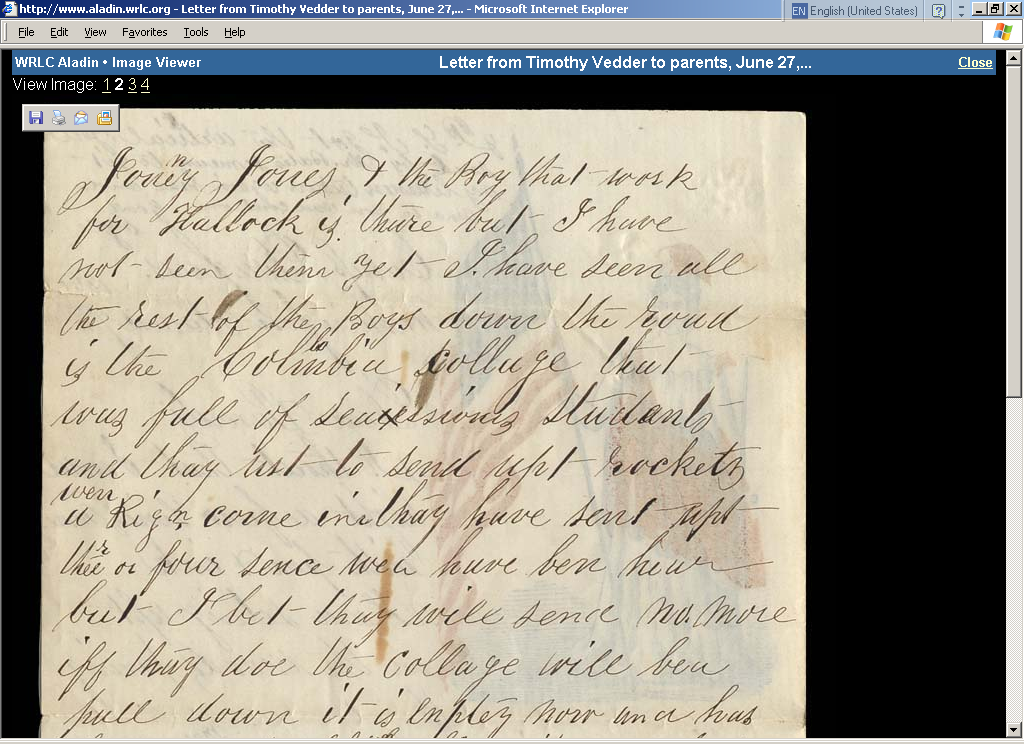 http://www.aladin.wrlc.org - Letter from Timothy Vedder to parents, June 27,... - Microsoft Internet Explorer
EN English (United States)
File Edit View Favorites Tools Help
WRLC Aladin • Image Viewer Letter from Timothy Vedder to parents, June 27,... Close
View Image: 1 2 3 4
Joney Jones & the Boy that work
for Hallock is thure but I have
not seen them yet I have seen all
the rest of the Boys down the roud
is the Colmbia colluge that
wus full of students
and thay ust to send upt rockets
wen
a Rign come in thay have sent upt
ther or four sence wea have ben hear
but I bet thay will send no. more
iff thay doe the collage will bea
pull down it is Enptey now and has